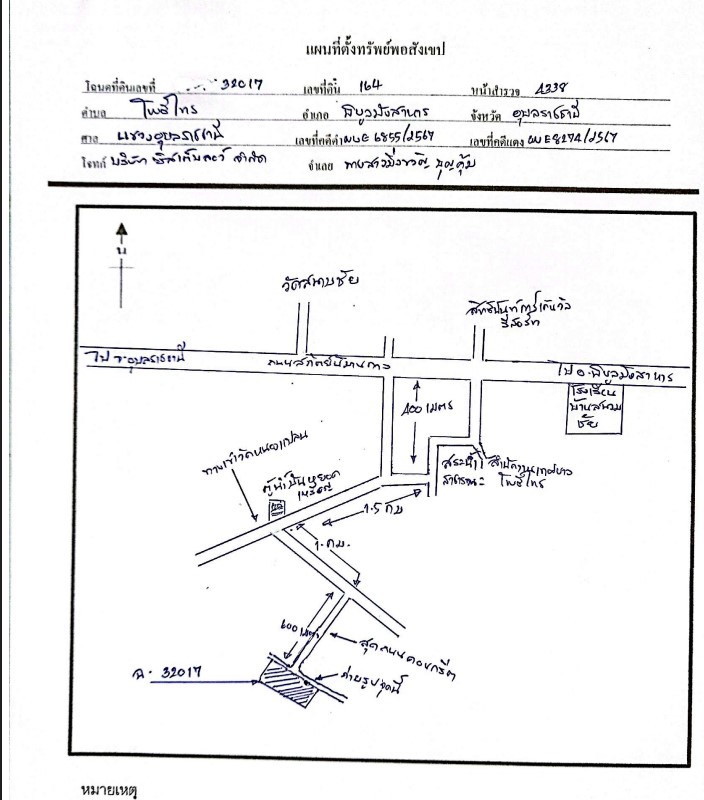 แผนที่ตั้งทรัพย์พอสังเขป
โฉนดที่ดินเลขที่ 32017 เลขที่ดิน 164 หน้าสำรวจ 4338
ตำบล โพธิ์ไทร อำเภอ พิบูลมังสาหาร จังหวัด อุบลราชธานี
ศาล แขวงอุบลราชธานี เลขที่คดีดำ ผบE 6855/2567 เลขที่คดีแดง ผบE8274/2567
โจทก์ บริษัท จำกัด จำเลย นางสาว
น
วัดสนามชัย
ไป จ.อุบลราชธานี ถนนสถิตย์นิมานกาล ไป อ.พิบูลมังสาหาร
โรงเรียน
บ้านสนาม
ชัย
400 เมตร
ทางเข้าวัด
ตู้น้ำมันหยอด
เหรียญ
สระน้ำ
สาธารณะ
สำนักงานเทศบาล
โพธิ์ไทร
1.5 กม
1. กม.
600 เมตร
สุดถนนคอนกรีต
ฉ. 32017
ถ่ายรูปจุดนี้
หมายเหตุ